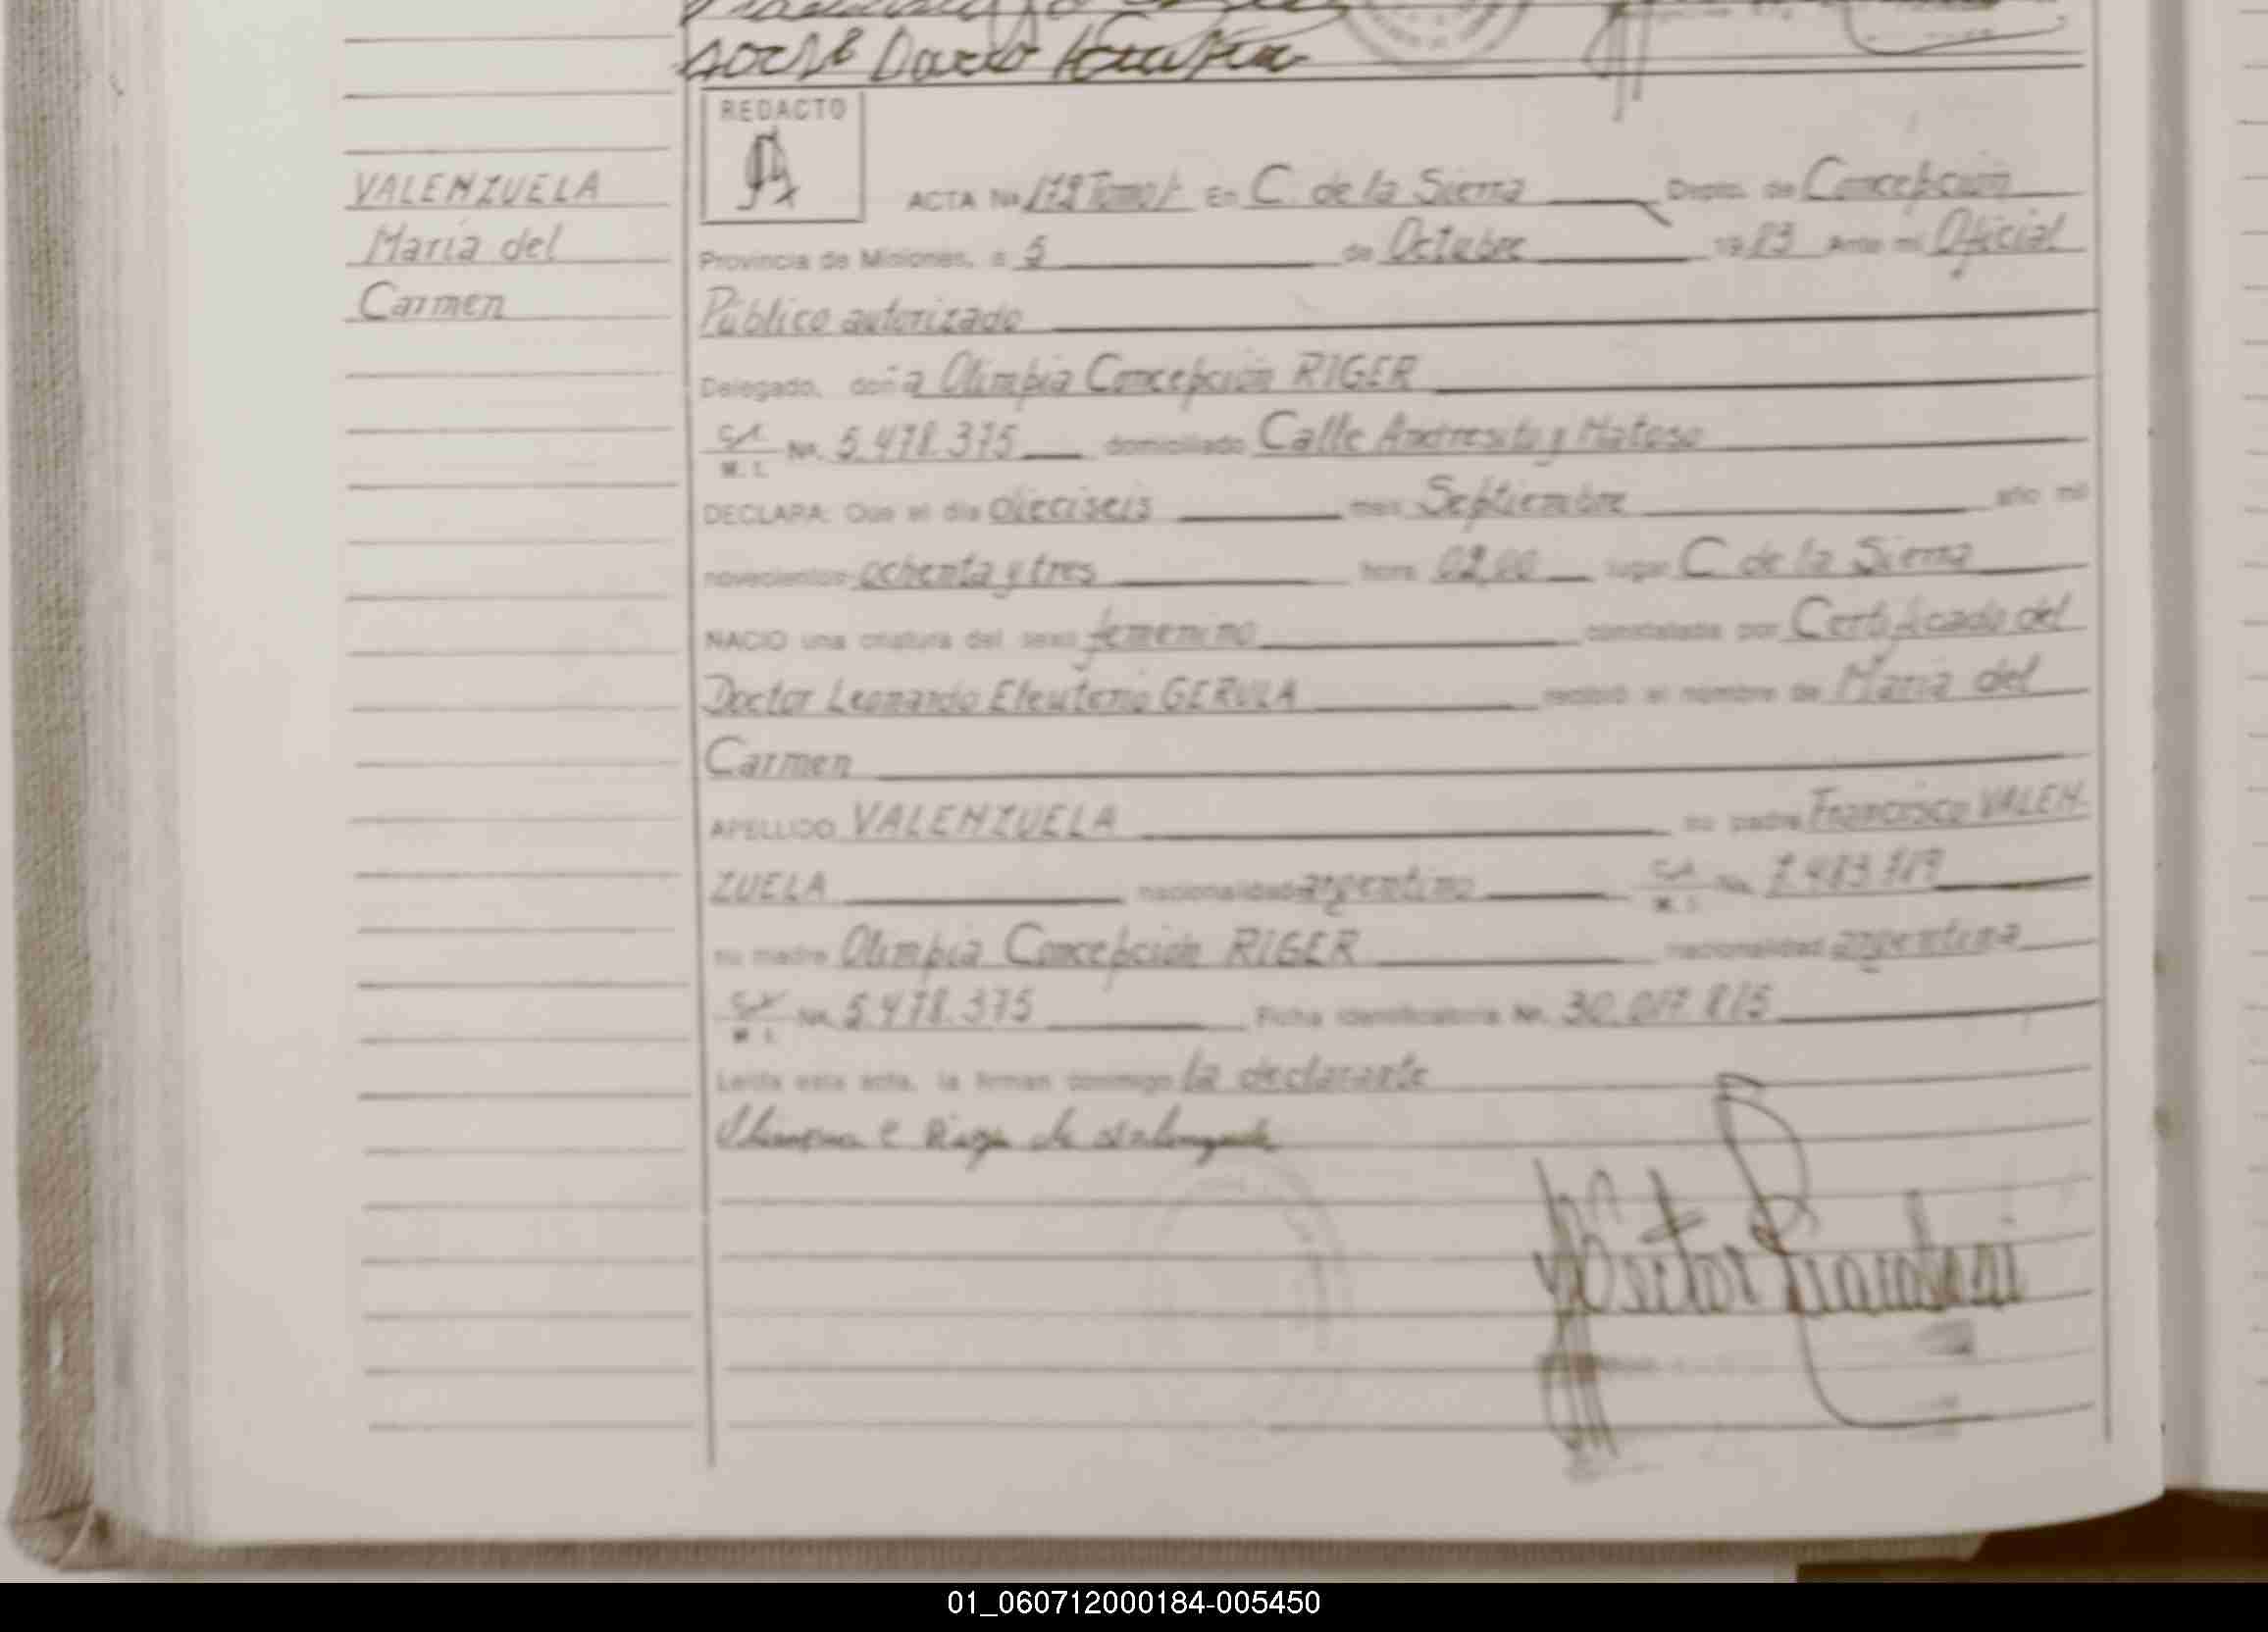 REDACTO
VALENZUELA
María del
Carmen
ACTA No 172 Tomo I En C. de la Sierra Depto. de Concepción
Provincia de Misiones, a 5 de Octubre 1983 Ante mí Oficial
Público autorizado
Delegado, doña Olimpia Concepción RIGER
M. I. No. 5.478.375 domiciliado Calle Andresito y Matoso
DECLARA: Que el día dieciseis mes Septiembre año mil
novecientos ochenta y tres hora 02,00 lugar C. de la Sierra
NACIO una criatura del sexo femenino constatada por Certificado del
Doctor Leonardo Eleuterio GERULA recibió el nombre de María del
Carmen
APELLIDO VALENZUELA su padre Francisco VALEN-
ZUELA nacionalidad argentino M. I. No.
su madre Olimpia Concepción RIGER nacionalidad argentina
M. I. No. 5.478.375 Ficha Identificatoria No. 30.017.815
Leída esta acta, la firman conmigo la declarante
01_060712000184-005450